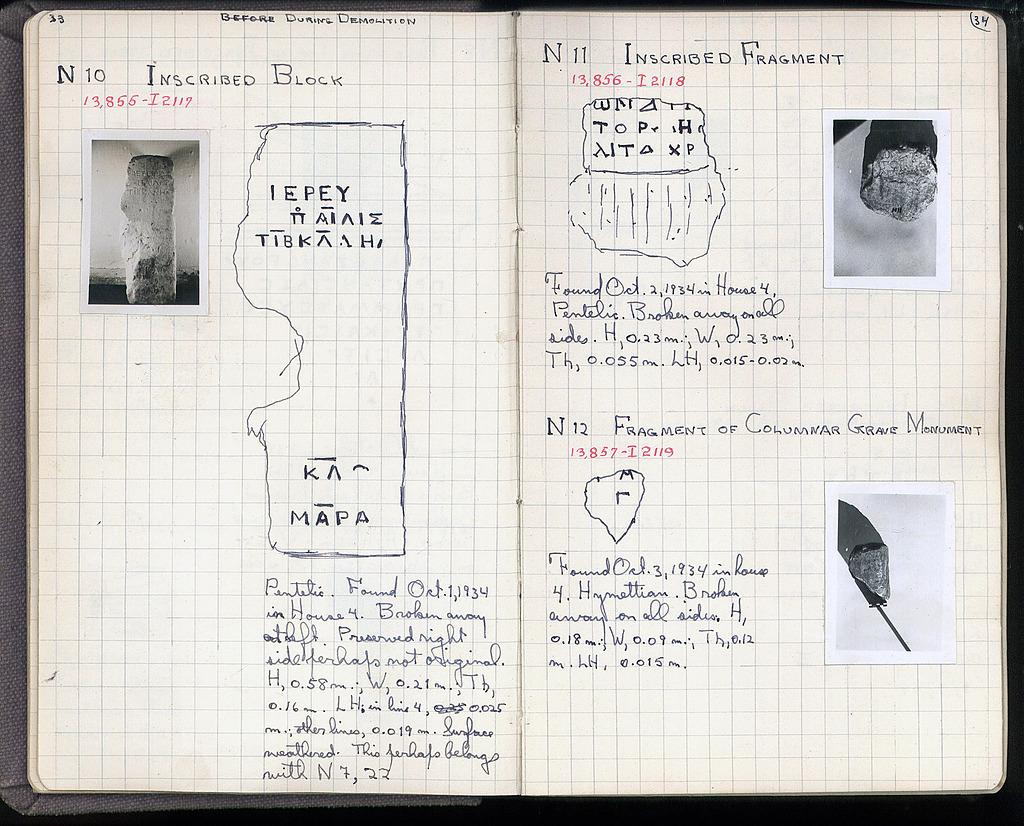 33
BEFORE DURING DEMOLITION
N 10 INSCRIBED BLOCK
13,855-I 2117
ΙΕΡΕΥ
Π ΑΙΛΙΣ
ΤΙΒΚΛ
ΚΛ
ΜΑΡΑ
Pentelic. Found Oct. 1, 1934
in House 4. Broken away
at left. Preserved right
side perhaps not original.
H, 0.58 m.; W, 0.21 m.; Th,
0.16 m. LH, in line 4, 0.025
m.; other lines, 0.019 m. Surface
weathered. This perhaps belongs
with N 7, 22
34
N 11 INSCRIBED FRAGMENT
13,856-I 2118
ΩΝΔ
ΤΟΡ Η
ΛΙΤΟ ΧΡ
Found Oct. 2, 1934 in House 4,
Pentelic. Broken away on all
sides. H, 0.23 m.; W, 0.23 m.;
Th, 0.055 m. LH, 0.015-0.02 m.
N 12 FRAGMENT OF COLUMNAR GRAVE MONUMENT
13,857-I 2119
Μ
Γ
Found Oct. 3, 1934 in house
4. Hymettian. Broken
away on all sides. H,
0.18 m.; W, 0.09 m.; Th, 0.12
m. LH, 0.015 m.